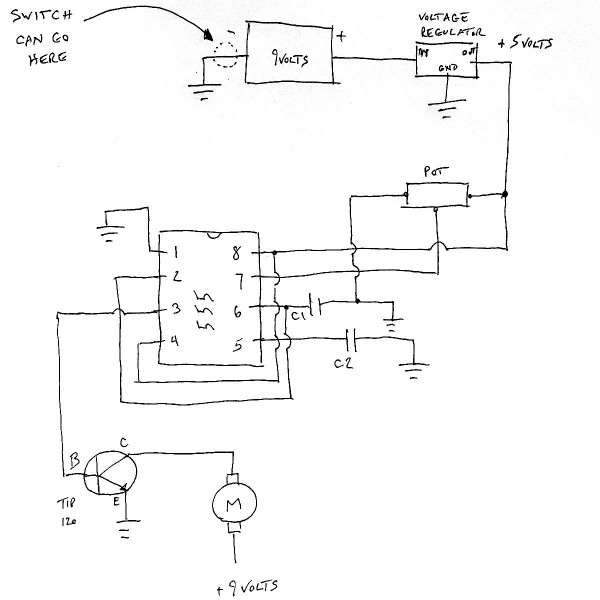 SWITCH
CAN GO
HERE
-
9VOLTS
+
VOLTAGE
REGULATOR
IN
OUT
GND
+5VOLTS
POT
1
2
3
4
555
8
7
6
5
C1
C2
B
C
E
TIP
120
M
+9VOLTS